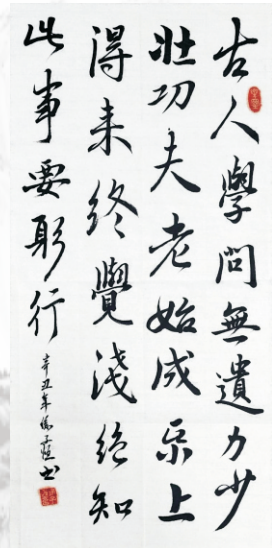 古人學問無遺力少
壯功夫老始成帋上
得来終覺淺絶知
此事要躬行
辛丑年 书